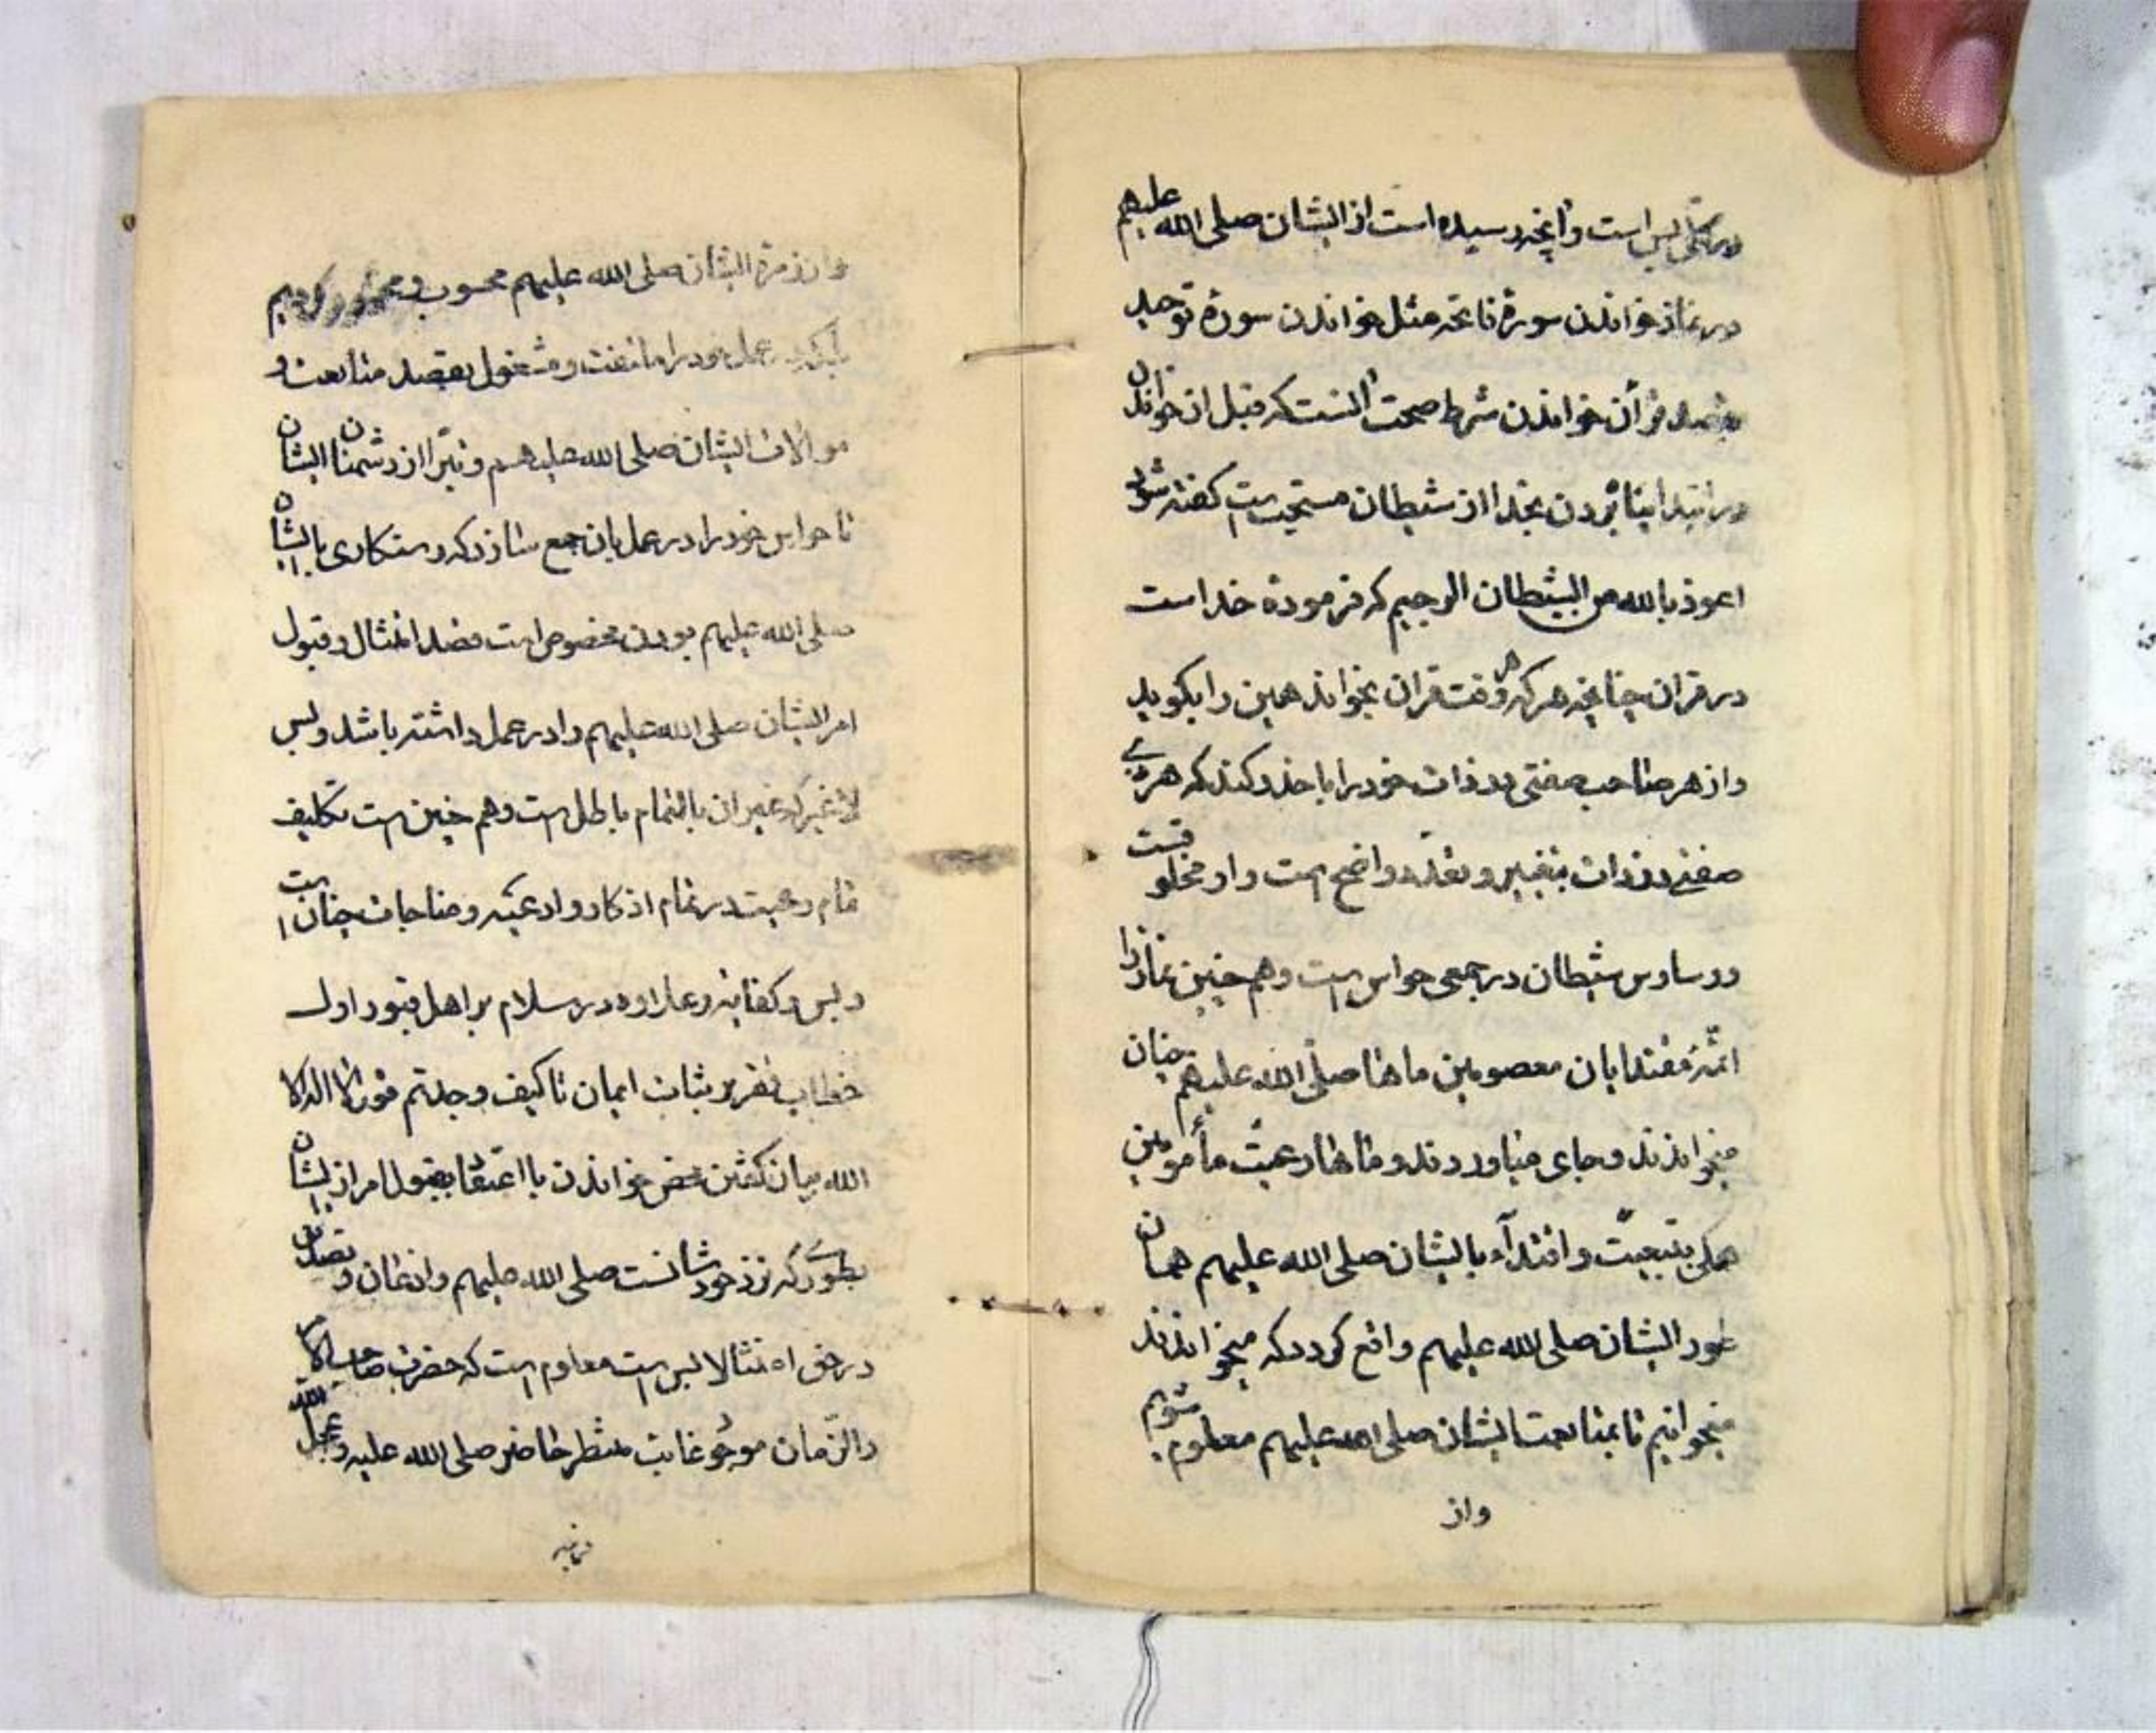 در کل بس است و آنچه رسیده است از ایشان صلی الله علیهم
در نماز خواندن سورۀ فاتحه مثل خواندن سورۀ توحید
بقصد قرآن خواندن شرط صحت آنست که قبل از خواندن
در ابتدا پناه بردن بخدا از شیطان مستحب است گفته شود
اعوذ بالله من الشیطان الرجیم که فرمودۀ خداست
در قران چنانچه هر که هر وقت قران بخواند همین را بگوید
و از هر صاحب صفتی در ذات خود را با حذر کند که هر ذی
صفتی در ذات بتغییر و تعدد واضح است و او مخلوقست
و وساوس شیطان در جمعی حواس است و هم چنین نماز را
ائمّه مقتدایان معصومین ماها صلّی الله علیهم چنان
میخواندند و بجای میاوردند و ماها رعیّت مأمومین
همگی بتبعیّت و اقتدآء بایشان صلی الله علیهم همان
طور ایشان صلی الله علیهم واقع گردد که میخواندند
میخوانیم تا بمتابعت ایشان صلی الله علیهم معلوم شویم
واز
و از زمرۀ ایشان صلی الله علیهم محسوب و
عمل خود را مانعت و مشغول بقصد متابعت و
موالات ایشان صلی الله علیهم و تبّرا از دشمنان ایشان
تا حواس خود را در عمل بان جمع سازد که رستکاری با ایشان
صلی الله علیهم بودن مخصوص است قصد امتثال و قبول
امر ایشان صلی الله علیهم را در عمل داشته باشد و بس
لا غیر که غیر ان بالتمام باطل است و هم چنین است تکلیف
تمام رعیت در تمام اذکار و ادعیّه و مناجات چنان است
و بس و کفایته در سلام بر اهل قبور اول
خطاب بتقریر بثبات ایمان تا کیف وجدتم قول لا اله الا
الله میان گفتن محض خواندن با اعتقاد بقبول امر از ایشان
بطوریکه نزد خودشانست صلی الله علیهم و اذعان و تصدیق
در حق امتثالا بس است معلوم است که حضرت صاحب الامر
والزّمان موجود غائب منتظر حاضر صلی الله علیه و عجل الله